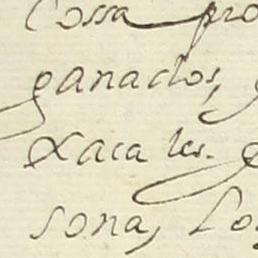 Cossa pro
ganados,
xaca les.
sona, Lo